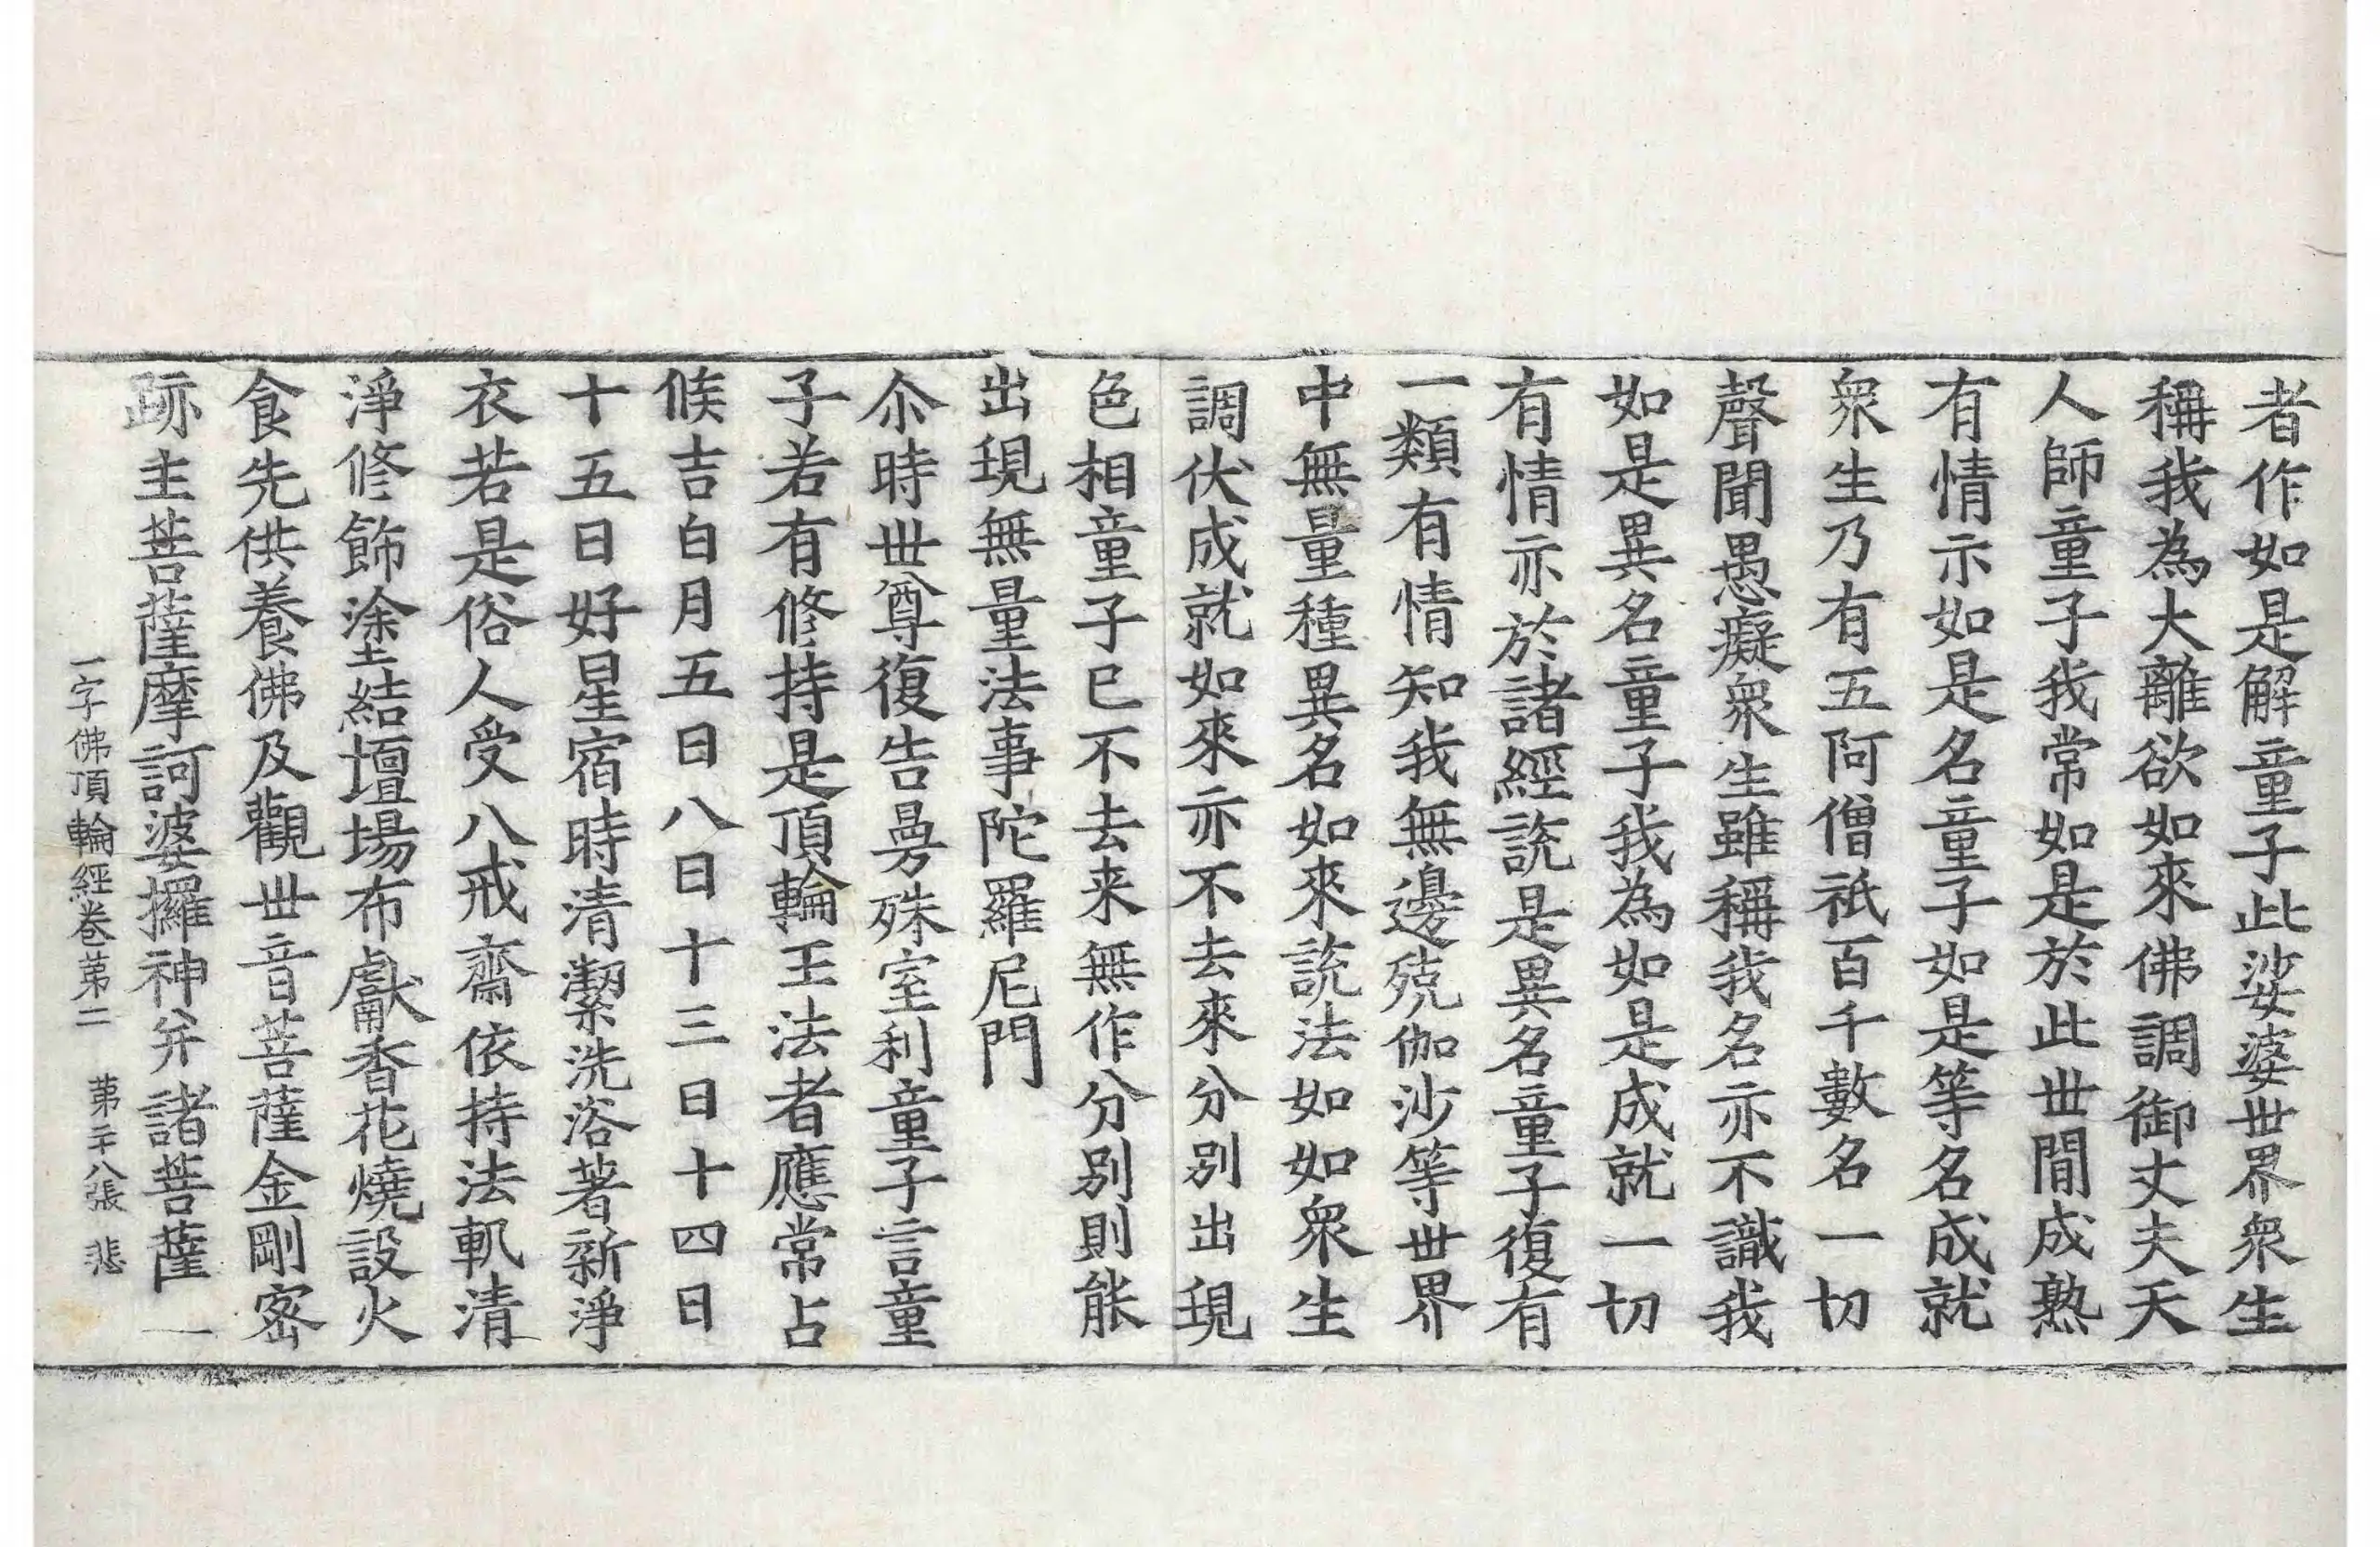 者作如是解童子此娑婆世界衆生
稱我為大離欲如來佛調御丈夫天
人師童子我常如是於此世間成熟
有情示如是名童子如是等名成就
衆生乃有五阿僧祇百千數名一切
聲聞愚癡衆生雖稱我名亦不識我
如是異名童子我為如是成就一切
有情亦於諸經說是異名童子復有
一類有情知我無邊殑伽沙等世界
中無量種異名如來說法如如衆生
調伏成就如來亦不去來分別出現
色相童子已不去来無作分別則能
出現無量法事陀羅尼門
尒時世尊復告曼殊室利童子言童
子若有修持是頂輪王法者應常占
候吉白月五日八日十三日十四日
十五日好星宿時清潔洗浴著新淨
衣若是俗人受八戒齋依持法軌清
淨修飾塗結壇場布獻香花燒設火
食先供養佛及觀世音菩薩金剛密
跡主菩薩摩訶婆攞神并諸菩薩一
一字佛頂輪經卷苐二 苐二十八張 悲